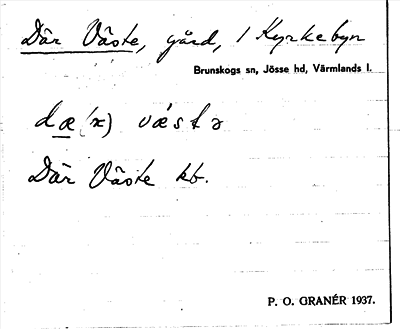 Där Väste, gård, i Kyrkebyn
Brunskogs sn, Jösse hd, Värmlands l.
dæ(r) vǽstə
Där Väste kb.
P. O. GRANÉR 1937.